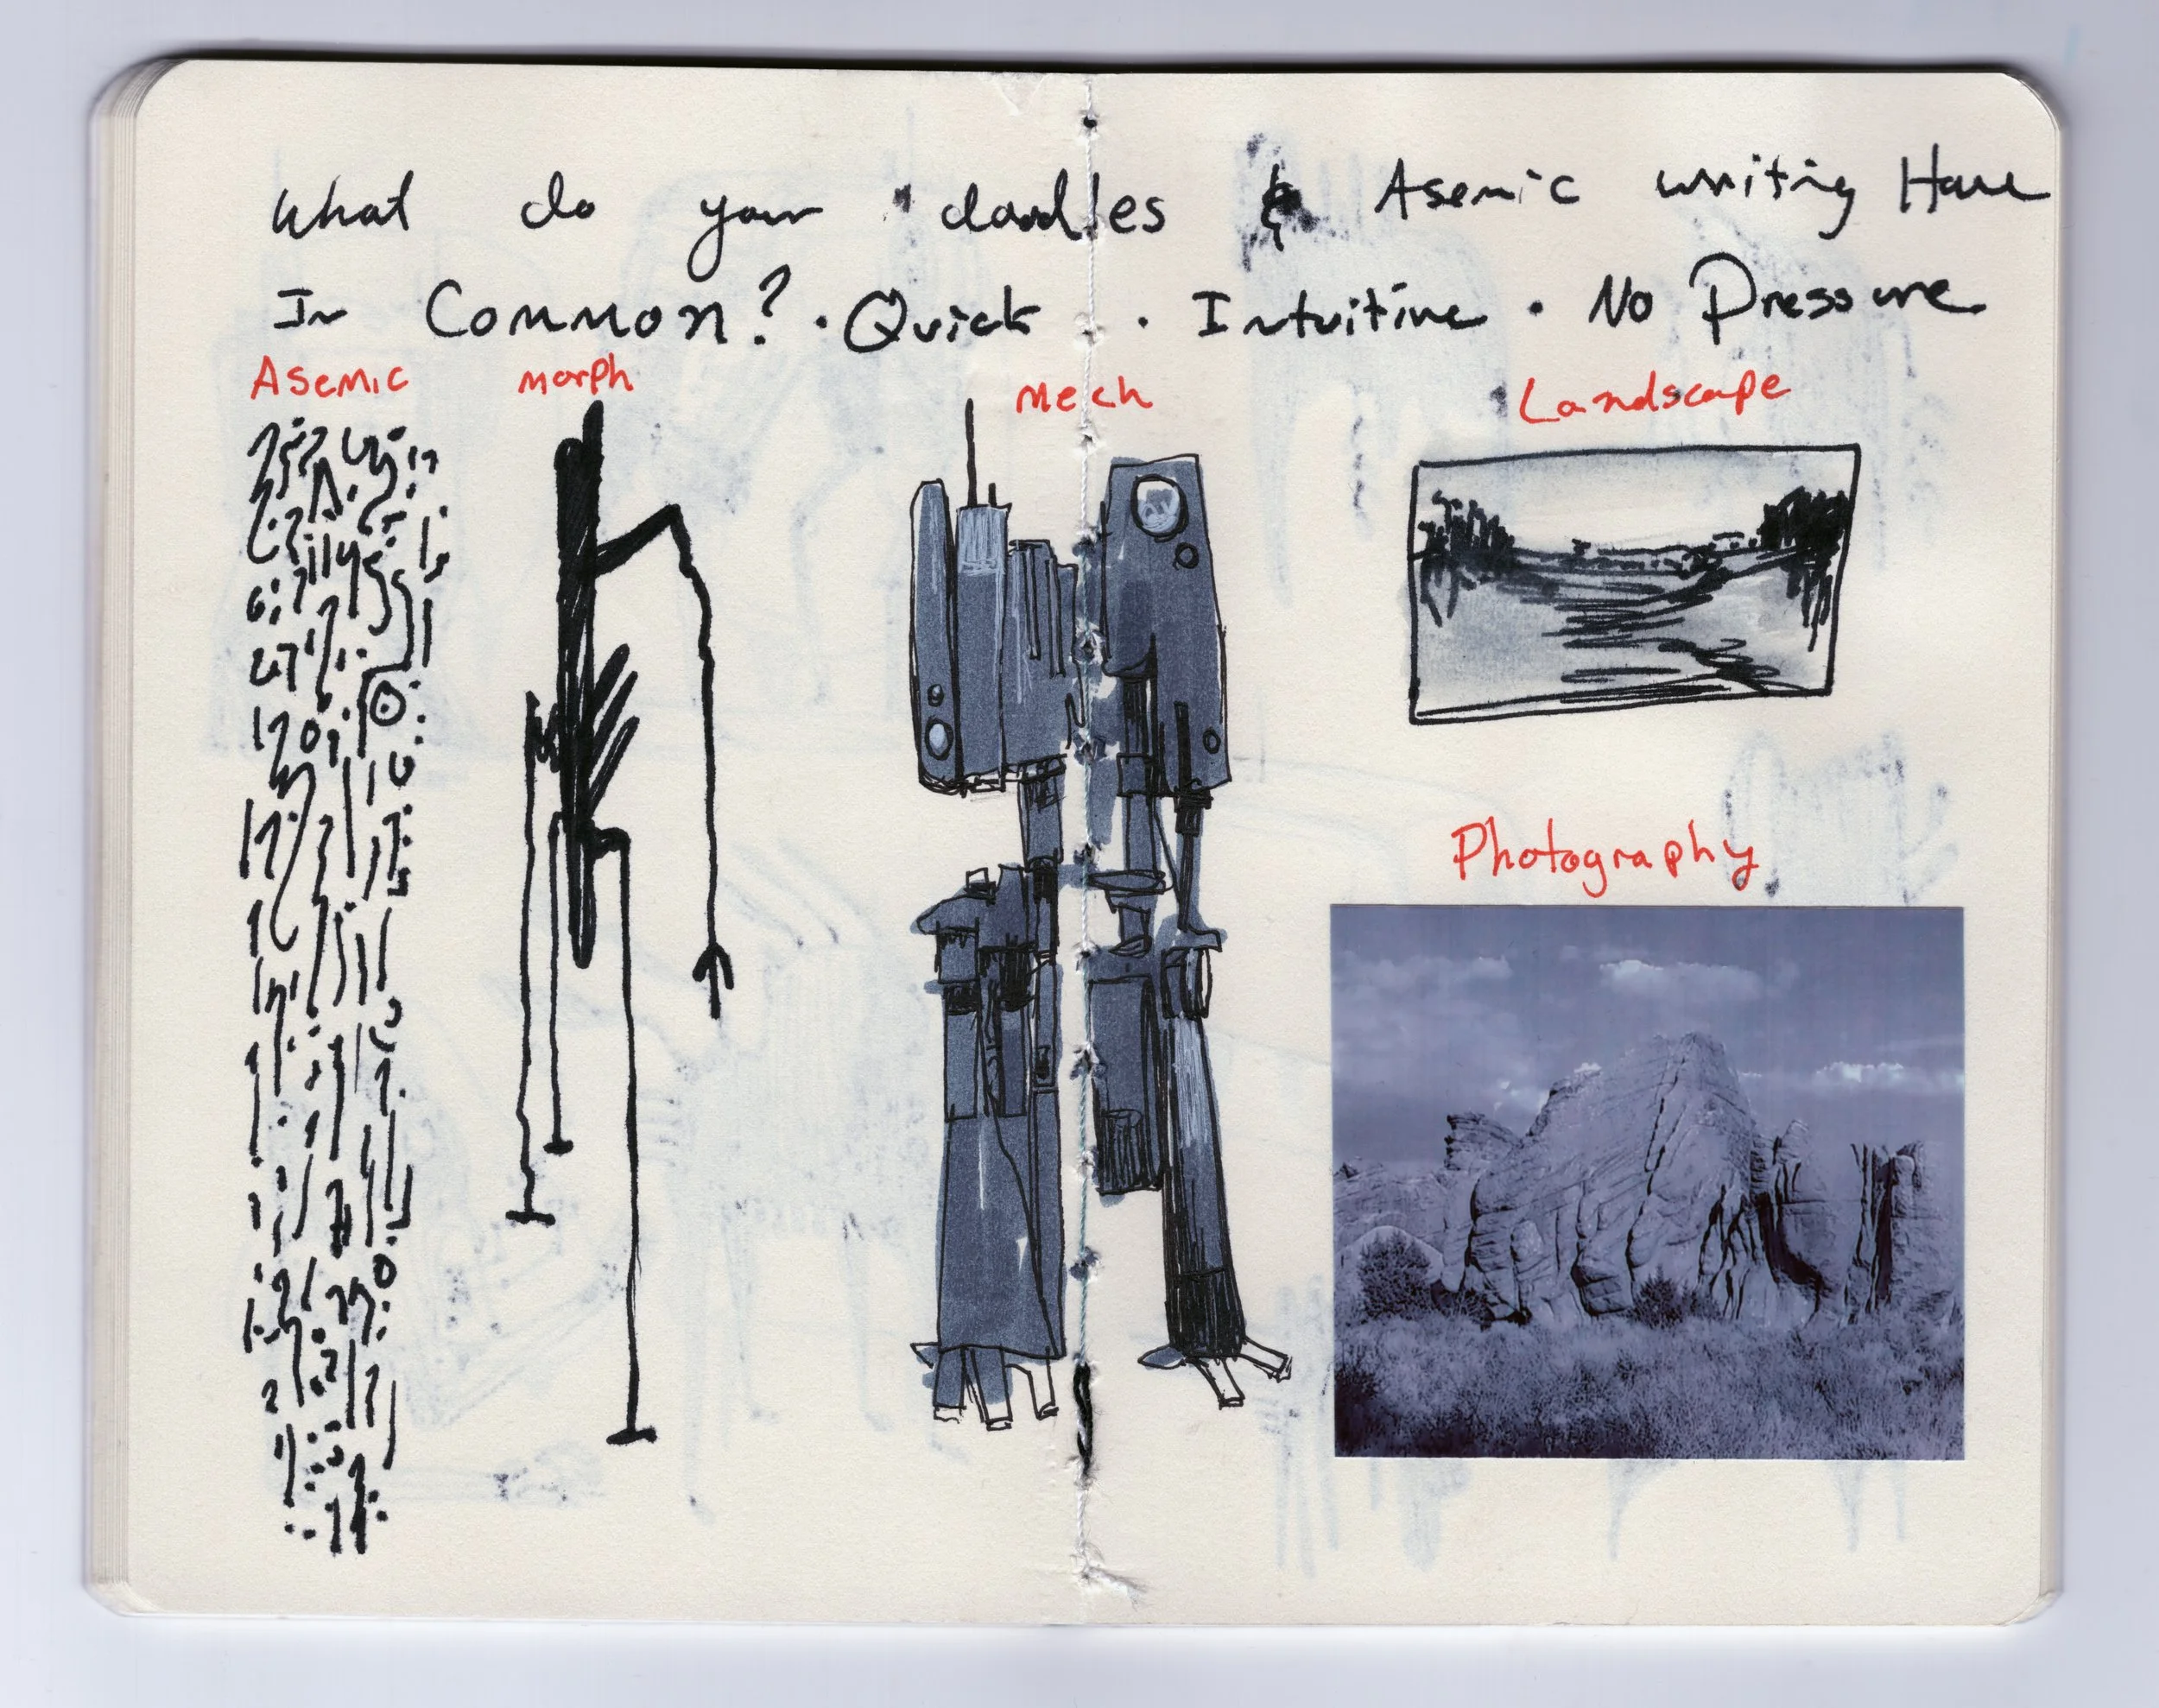 What do your doodles & Asemic writing Have
In Common? · Quick · Intuitive · No Pressure
Asemic morph mech Landscape
Photography